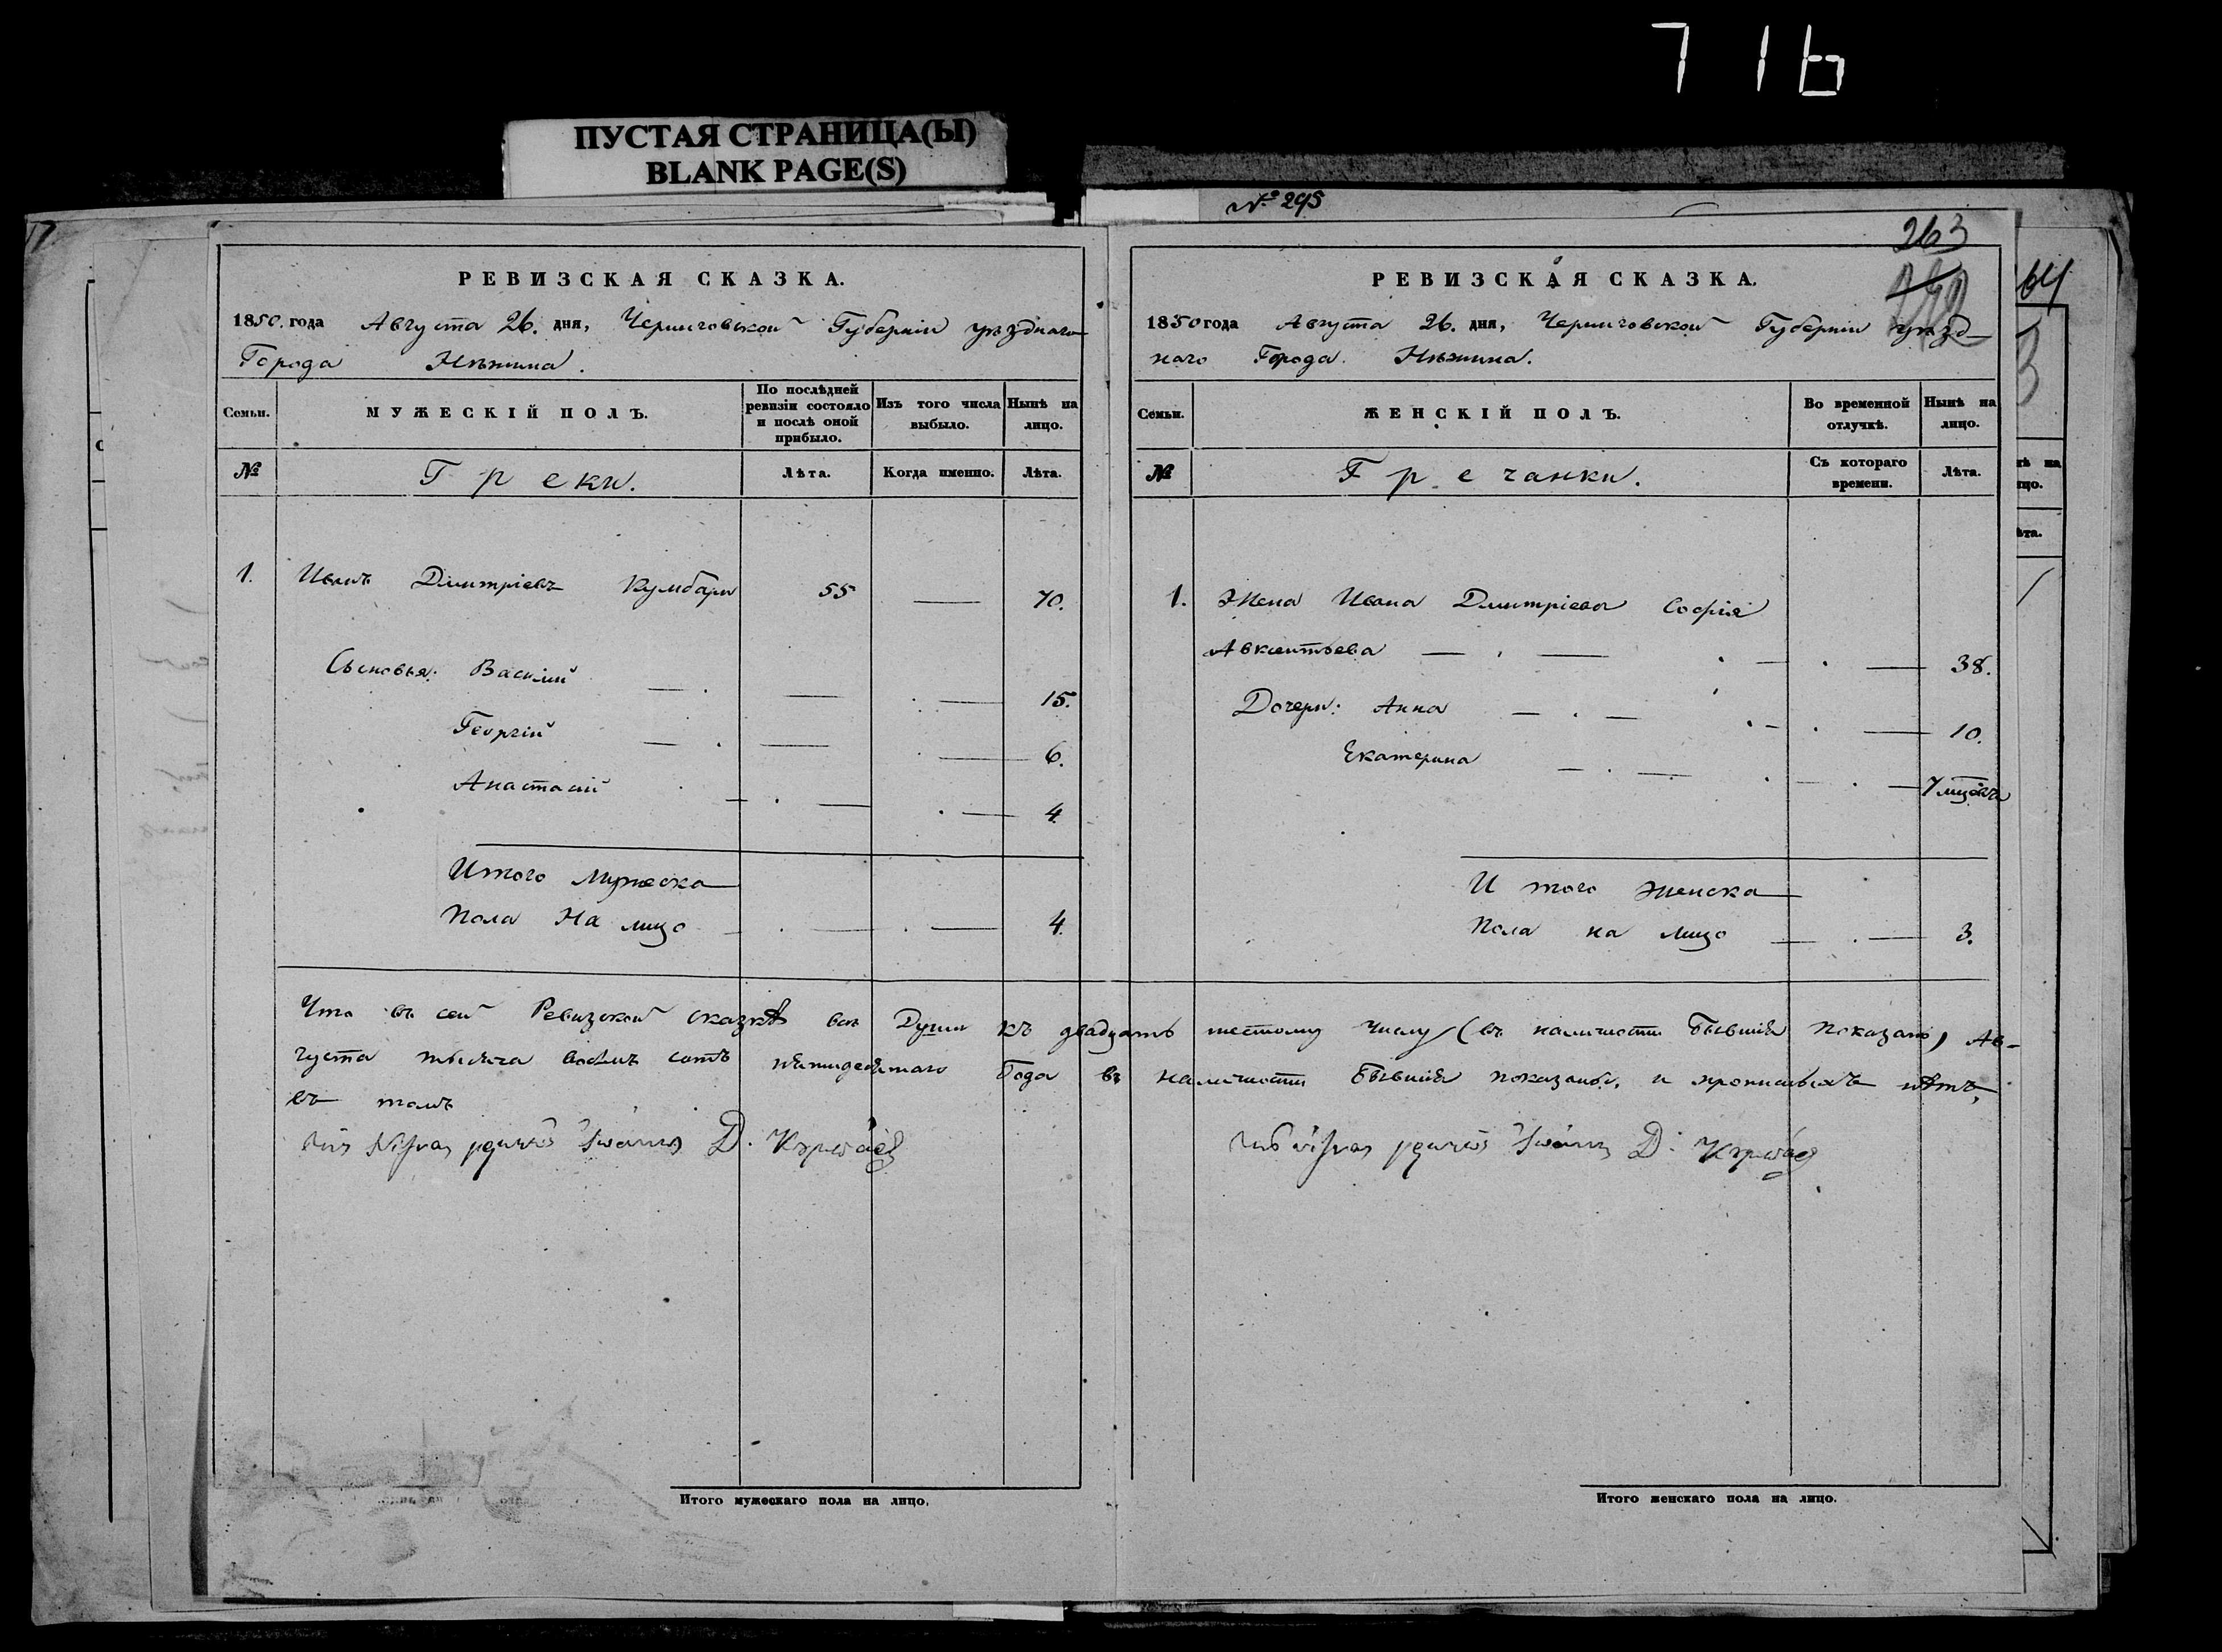 716
ПУСТАЯ СТРАНИЦА(Ы)
BLANK PAGE(S)
№ 295
263
64
РЕВИЗСКАЯ СКАЗКА.
1850. года Августа 26. дня, Черниговской Губерніи уѣзднаго
Города Нѣжина.
Семьи.
МУЖЕСКІЙ ПОЛЪ.
По послѣдней ревизіи состояло и послѣ оной прибыло.
Изъ того числа выбыло.
Нынѣ на лицо.
№
Греки.
Лѣта.
Когда именно.
Лѣта.
1. Иванъ Дмитріевъ Кумбари 55 — 70.
Сыновья: Василий — . — . — 15.
Георгій — . — . — 6.
Анастасій — . — . — 4.
Итого мужеска
Пола На лицо — . — . — 4.
РЕВИЗСКАЯ СКАЗКА.
1850 года Августа 26. дня, Черниговской Губерніи уѣзд-
наго Города Нѣжина.
Семьи.
ЖЕНСКІЙ ПОЛЪ.
Во временной отлучкѣ.
Нынѣ на лицо.
№
Гречанки.
Съ котораго времени.
Лѣта.
1. Жена Ивана Дмитріева Софія
Авксентьева — . — . — . — 38.
Дочери: Анна — . — . — . — 10.
Екатерина — . — . — . — 7
И того женска
Пола на лицо — . — 3.
Что въ сей Ревизской сказкѣ все Души къ двадцать шестому числу (въ наличности бывшія показано) Ав-
густа тысяча восемь сотъ пятидесятаго Года въ наличности бывшія показаны, и прописныхъ нѣтъ,
въ томъ
Ἰωάννης Δ.
Ἰωάννης Δ.
Итого мужескаго пола на лицо.
Итого женскаго пола на лицо.